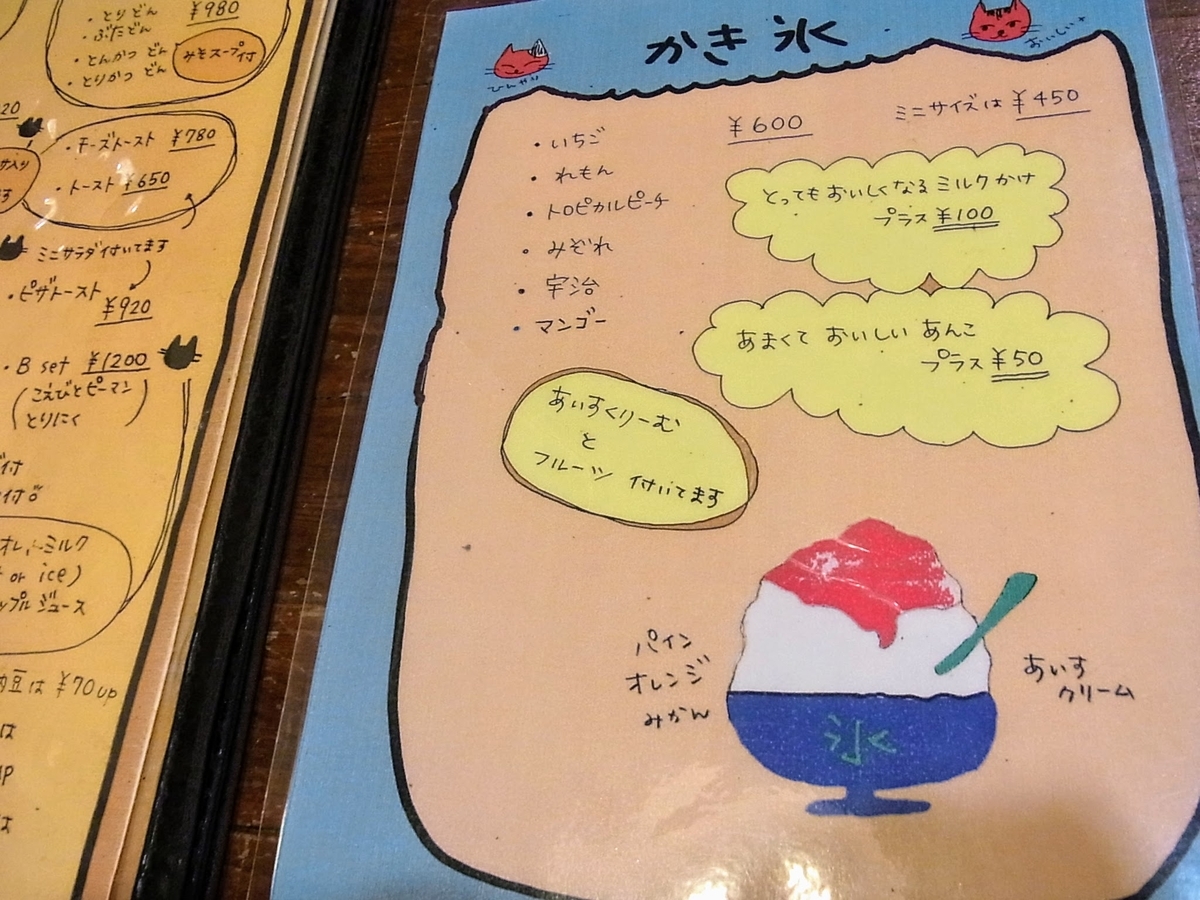 ・とりどん ¥980
・ぶたどん
・とんかつ どん
・とりかつ どん
みそスープ付
20
・チーズトースト ¥780
・トースト ¥650
ミニサラダ付いてます
・ピザトースト
¥920
・B set ¥1200
(こえびとピーマン
とりにく)
付
オレ,ミルク
or ice)
ップル ジュース
納豆は ¥70up
は
は
かき 氷
ひんやり
おいしい
・いちご
・れもん
・トロピカルピーチ
・みぞれ
・宇治
・マンゴー
¥600
ミニサイズは ¥450
とってもおいしくなる ミルクかけ
プラス ¥100
あまくて おいしい あんこ
プラス ¥50
あいすくりーむ
と
フルーツ 付いてます
パイン
オレンジ
みかん
氷
あいす
クリーム